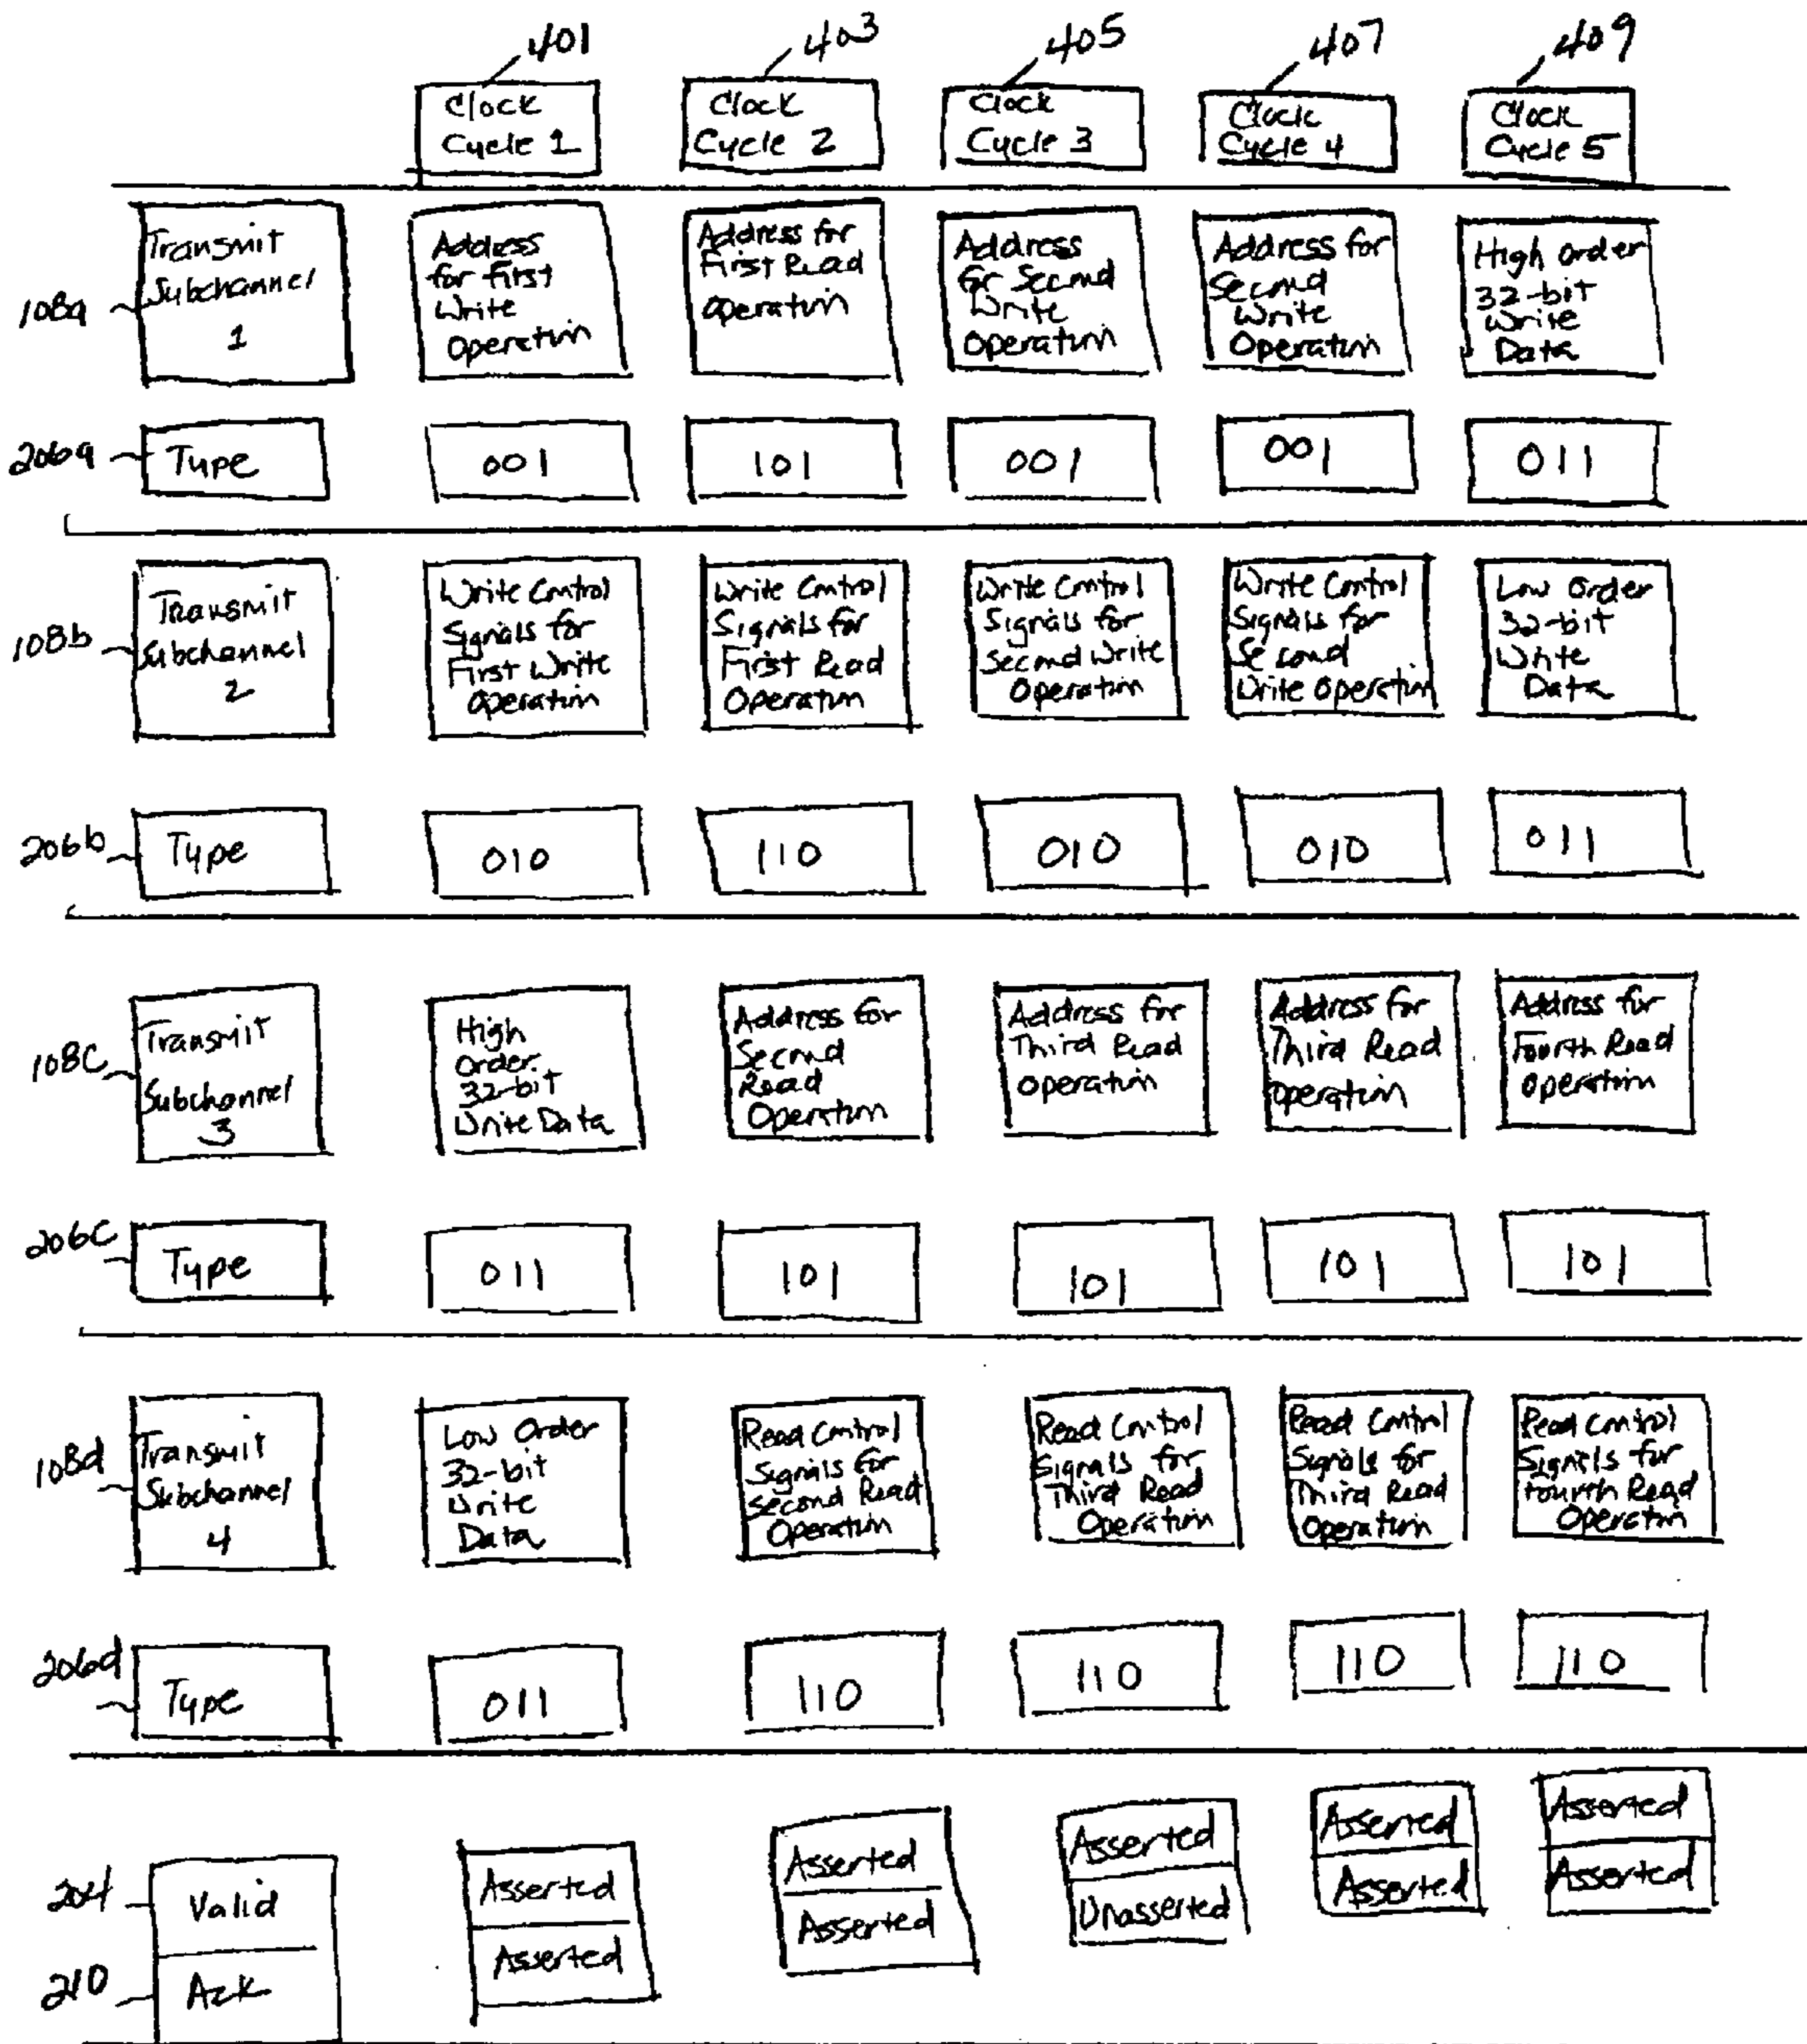 401 403 405 407 409
Clock Clock Clock Clock Clock
Cycle 1 Cycle 2 Cycle 3 Cycle 4 Cycle 5
108a
Transmit
Subchannel
1
Address
for First
Write
Operation
Address for
First Read
Operation
Address
for Second
Write
Operation
Address for
Second
Write
Operation
High order
32-bit
Write
Data
206a Type 001 101 001 001 011
108b
Transmit
Subchannel
2
Write Control
Signals for
First Write
Operation
Write Control
Signals for
First Read
Operation
Write Control
Signals for
Second Write
Operation
Write Control
Signals for
Second
Write Operation
Low Order
32-bit
Write
Data
206b Type 010 110 010 010 011
108c
Transmit
Subchannel
3
High
Order
32-bit
Write Data
Address for
Second
Read
Operation
Address for
Third Read
Operation
Address for
Third Read
Operation
Address for
Fourth Read
Operation
206c Type 011 101 101 101 101
108d
Transmit
Subchannel
4
Low Order
32-bit
Write
Data
Read Control
Signals for
Second Read
Operation
Read Control
Signals for
Third Read
Operation
Read Control
Signals for
Third Read
Operation
Read Control
Signals for
Fourth Read
Operation
206d Type 011 110 110 110 110
204 Valid Asserted Asserted Asserted Asserted Asserted
210 Ack Asserted Asserted Unasserted Asserted Asserted